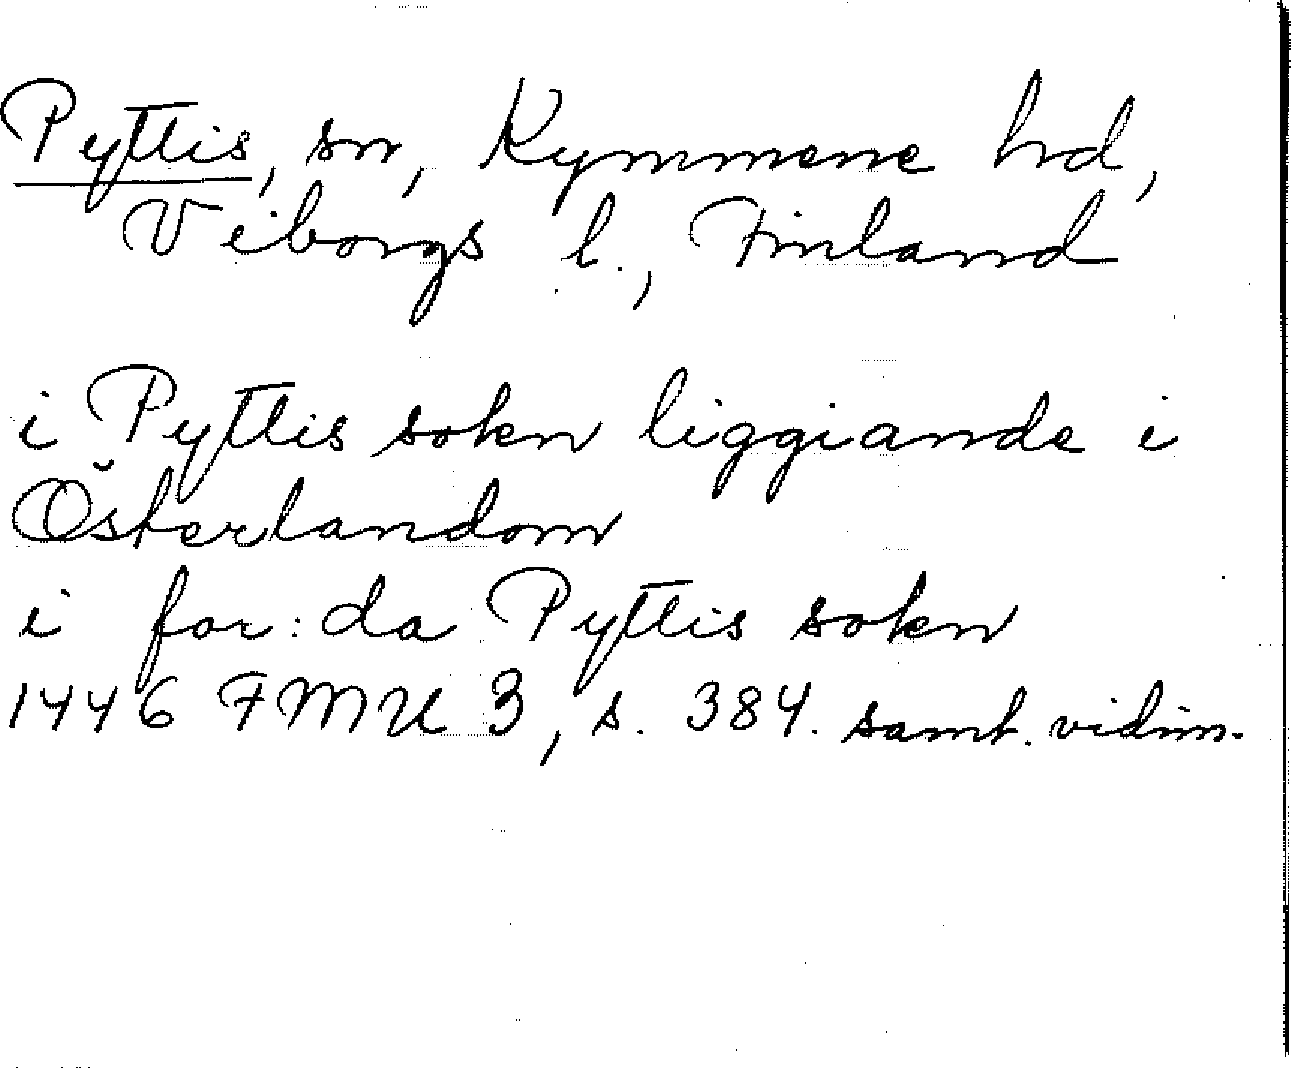 Pyttis, sn, Kymmene hd,
Viborgs l., Finland
i Pyttis sokn liggiande i
Österlandom
i for:da Pyttis sokn
1446 FMU 3, s. 384. samt. vidim.